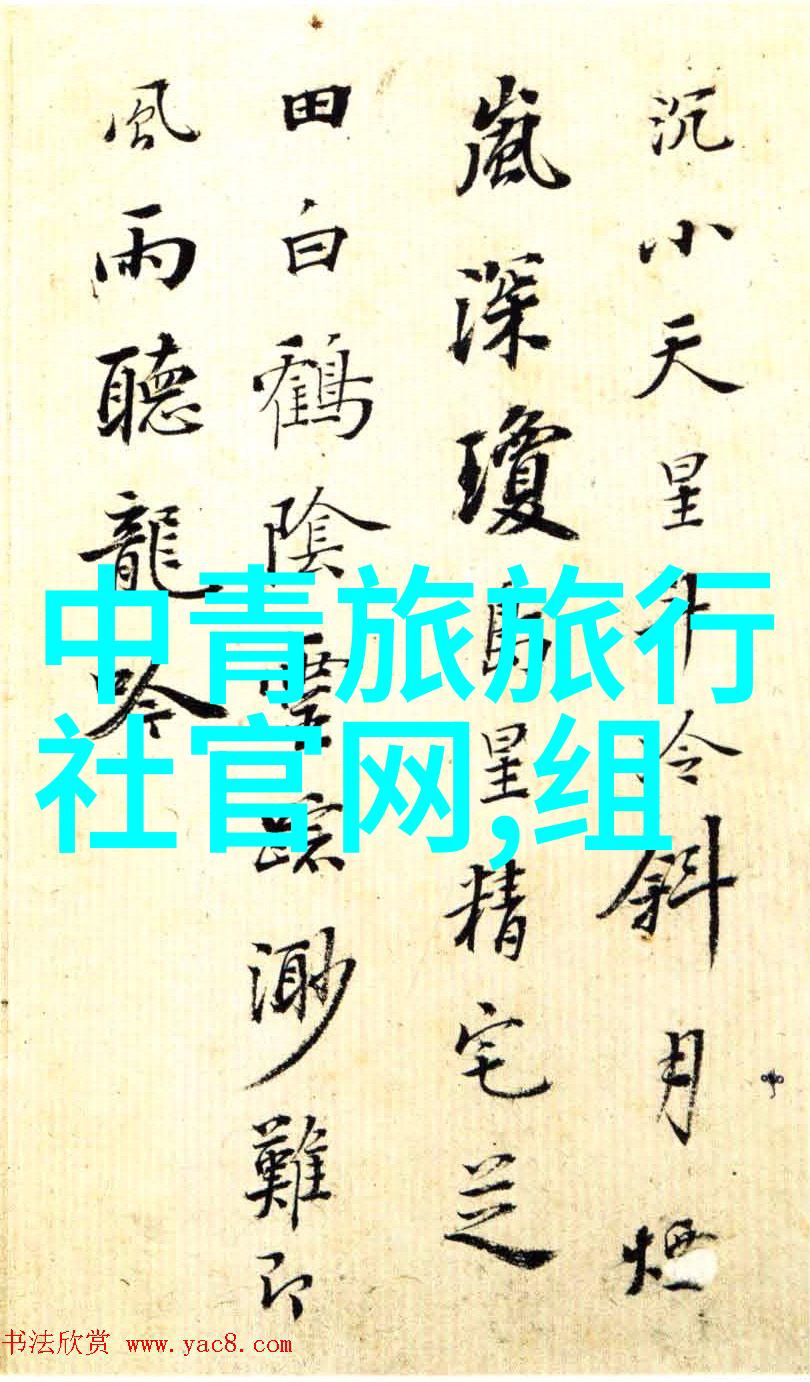 沉小天星斗冷斜月煙
嵐深瓊島星精宅芝
田白鶴陰踪渺難即
風雨聽龍吟
中青旅旅行
社官网,组
书法欣赏 www.yac8.com